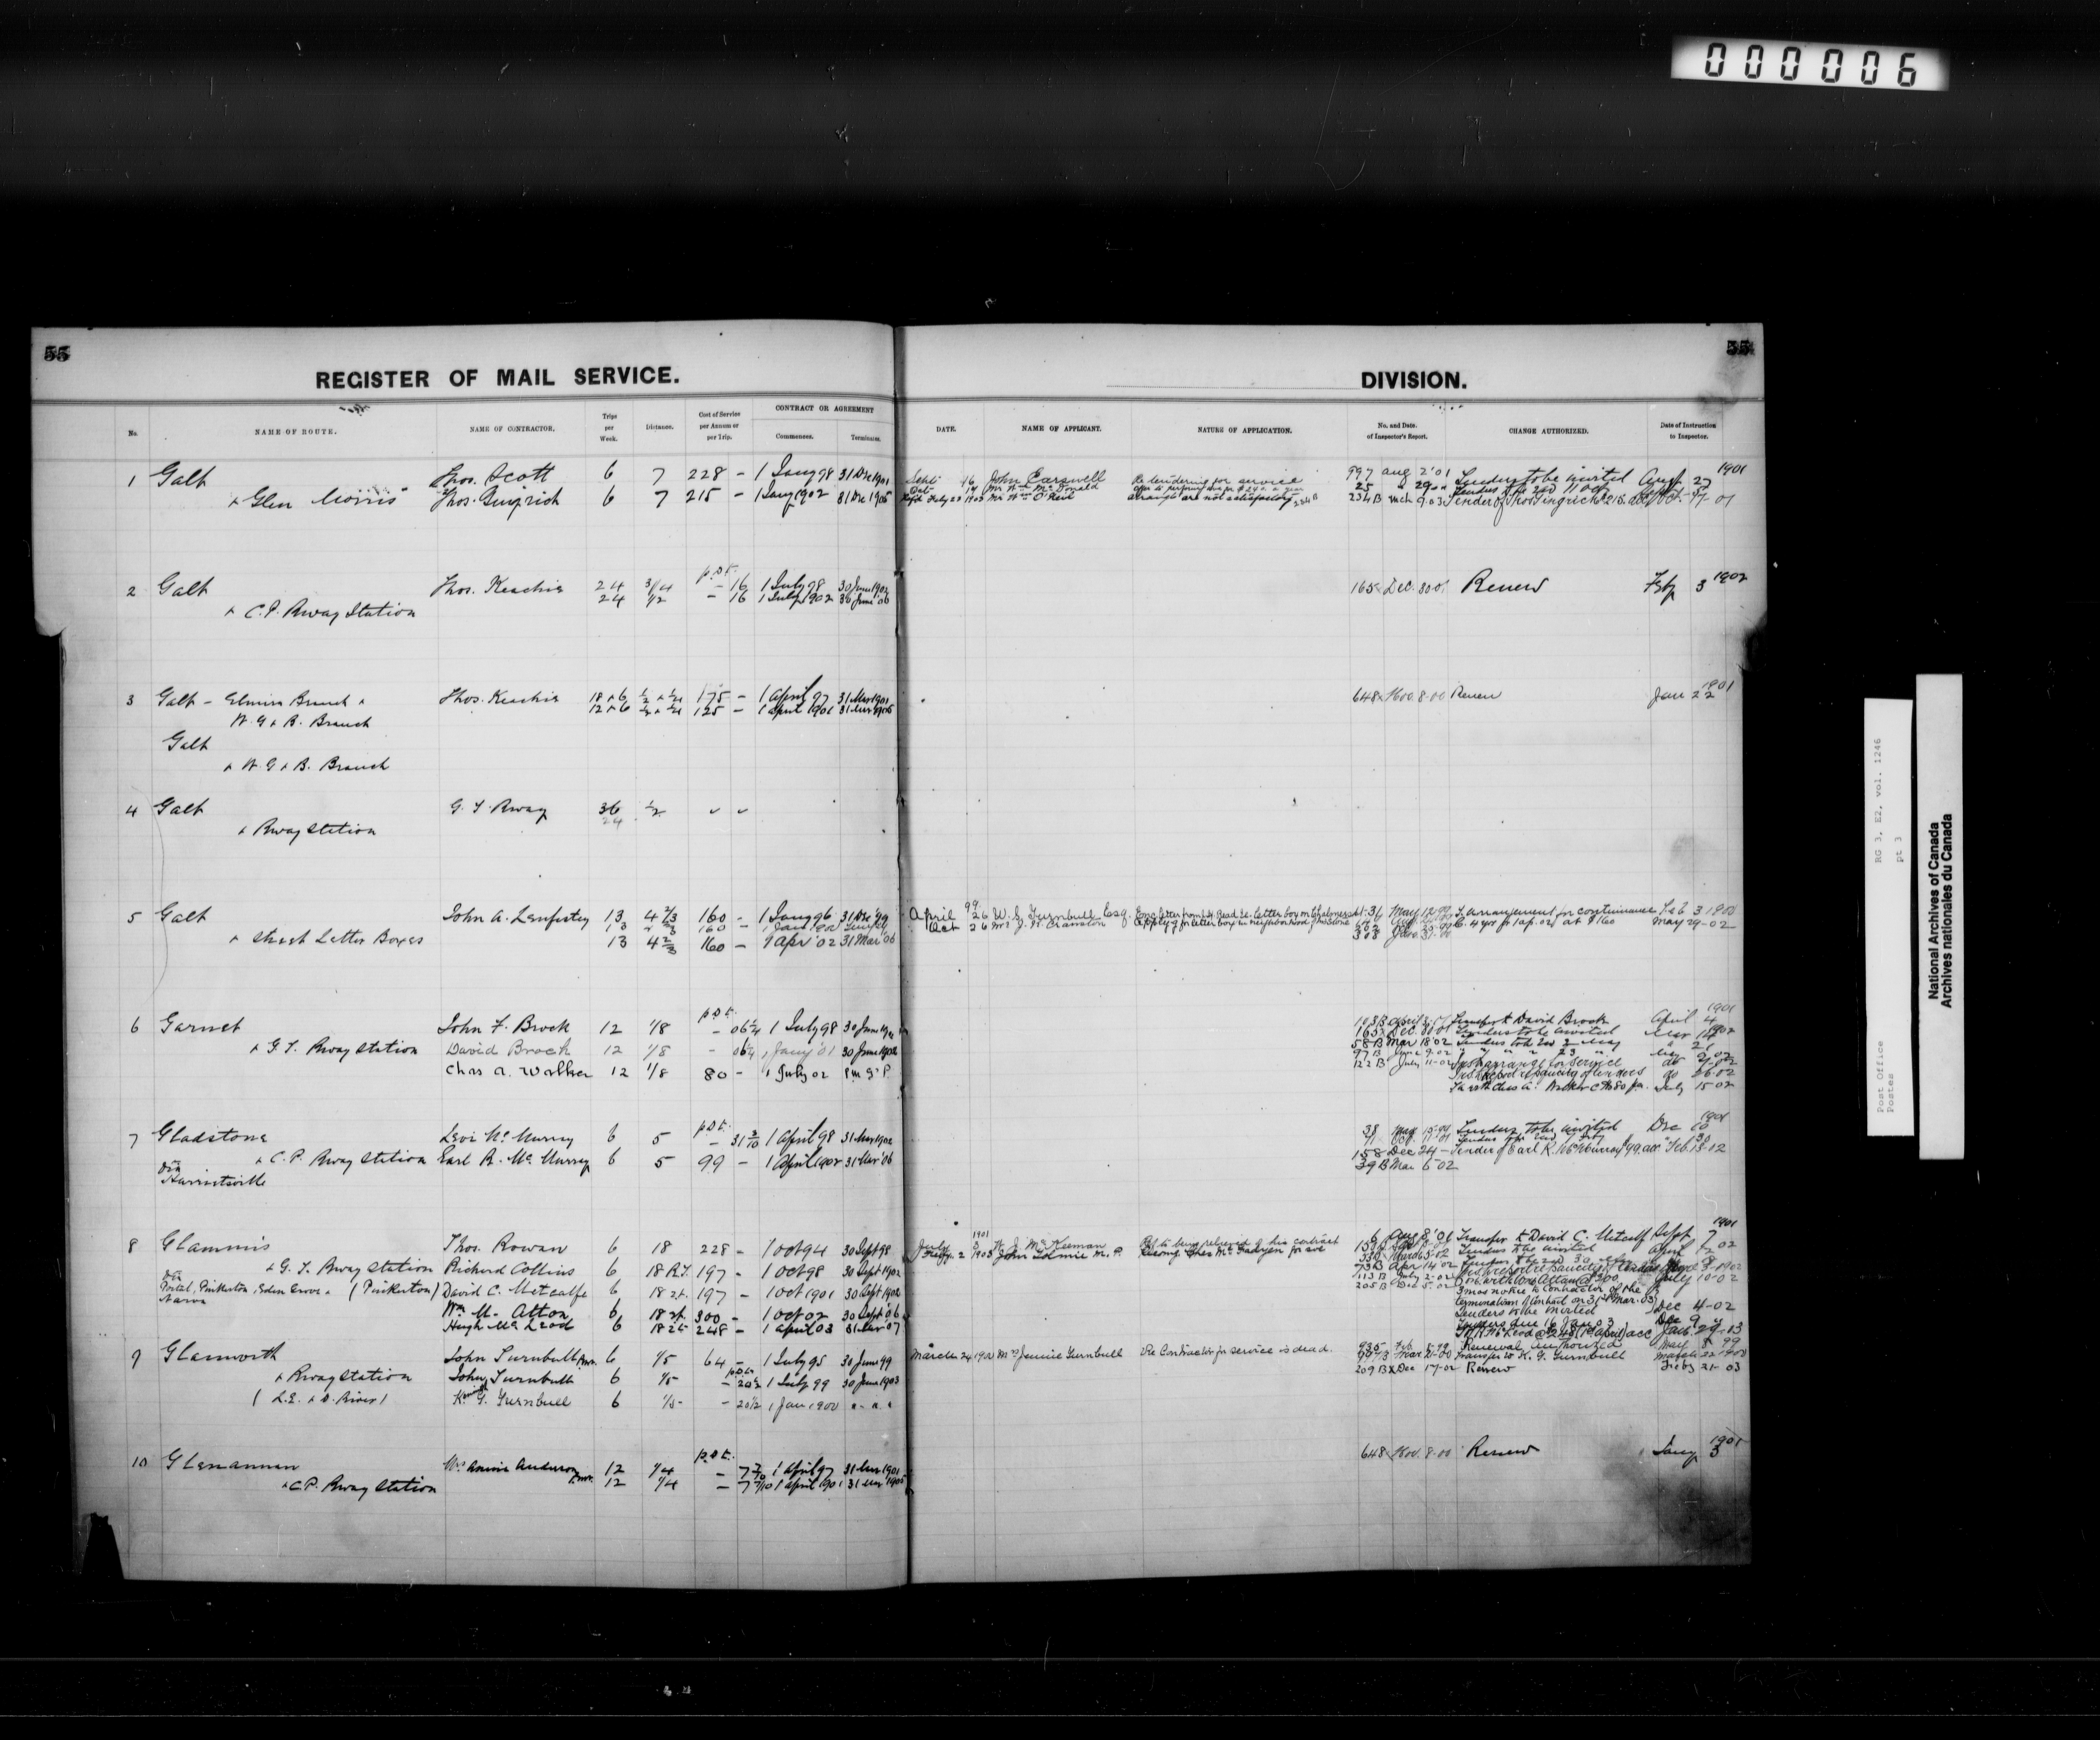 000006
55
REGISTER OF MAIL SERVICE.
No.
NAME OF ROUTE.
NAME OF CONTRACTOR.
Trips per Week.
Distance.
Cost of Service per Annum or per Trip.
CONTRACT OR AGREEMENT
Commences.
Terminates.
1 Galt Thos. Scott 6 7 228 – 1 Jany 98 31 Dec 1901
& Glen Morris Thos. 6 7 215 – 1 Jany 1902 31 Dec 1905
p.s.t.
2 Galt Thos. Keachie 24 3/4 – 16 1 July 98 30 June 1902
24 1/2 – 16 1 July 1902 30 June 06
& C.P. Rway Station
3 Galt – Elmira Branch & Thos. Keachie 18 & 6 175 – 1 April 97 31 Mar 1901
W.G & B. Branch 12 & 6 125 – 1 April 1901 31 Mar 1905
Galt
& W.G & B. Branch
4 Galt G.T. Rway 36 1/2
24
& Rway Station
5 Galt John A. 13 4 2/3 160 – 1 Jany 96 31 Dec 99
13 160 –
& Street Letter Boxes 13 4 2/3 160 – 1 Apr '02 31 Mar '06
p.s.t.
6 Garnet John F. Brock 12 1/8 – 06 1/4 1 July 98
& G.T. Rway Station David Brock 12 1/8 – 06 1/4 1 Jany '01 30 June 1902
Chas A. Walker 12 1/8 80 – 1 July 02
p.s.t.
7 Gladstone Levi McMurray 6 5 – 31 3/10 1 April 98 31 Mar 1902
& C.P. Rway Station Earl R. McMurray 6 5 99 – 1 April 1902 31 Mar '06
via
Harrietsville
8 Glammis Thos. Rowan 6 18 228 – 1 Oct 94 30 Sept 98
& G.T. Rway Station Richard Collins 6 18 R.T. 197 – 1 Oct 98 30 Sept 1902
via
Pinkerton, Eden Grove & (Pinkerton) David C. Metcalfe 6 18 r.t. 197 – 1 Oct 1901 30 Sept 1902
Narva
Wm M. Atton 6 18 r.t. 300 – 1 Oct 02 30 Sept '06
Hugh McLeod 6 18 r.t. 248 – 1 April 03 31 Mar 07
9 Glanworth John Turnbull 6 1/5 64 – 1 July 95 30 June 99
p.s.t.
& Rway Station John Turnbull 6 1/5 – 20 1/2 1 July 99 30 June 1903
(L.E. & D. River) K. G. Turnbull 6 1/5 – 20 1/2 1 Jan 1900 " "
p.s.t.
10 Glenannan Mrs Annie Anderson 12 1/4 – 7 7/10 1 April 97 31 Mar 1901
& C.P. Rway Station 12 1/4 – 7 7/10 1 April 1901 31 Mar 1905
55
DIVISION.
DATE.
NAME OF APPLICANT.
NATURE OF APPLICATION.
No. and Date. of Inspector's Report.
CHANGE AUTHORIZED.
Date of Instruction to Inspector.
1901
Sept 16 John Carswell Re tendering for service 997 Aug 2 '01 Tenders to be invited Aug 27
Mr Wm McDonald
Mr Wm O'Neil arrangts are not satisfactory 234 B Mch 9.03
1902
165 Dec. 30.01 Renew Feby 3
1901
648 Nov. 8.00 Renew Jan 22
99
April 26 W. J. Turnbull Esq. Feb 3 1900
Oct 26 Mrs J. W. Cranston 4 yrs fr 1 Ap. 02 at $160 May 29-02
1901
103 B April Transfer to David Brock April 4
165 Dec 30 01 Tenders to be invited
58 B Mar 18 02
97 B June 9-02
122 B July 11-02 arrange for service
July 15 02
1901
38 Tenders to be invited Dec 10
158 Dec 24 – Tender of Earl R. McMurray $99. acc Feb. 13-02
39 B Mar 6 02
1901
6 Aug 8 '01 Transfer to David C. Metcalf Sept 7
July 3 W. J. McKeeman Ref to being relieved of his contract Tenders to be invited April 1 02
1903 John Tolmie M.P. 73 B Apr 14 02
113 B July 2-02 July 10-02
205 B Dec 5-02 3 mos notice to contractor of the
termination of contract on 31st Mar. 03 Dec 4-02
Tenders to be invited Dec 9
Tenders due 16 Jany 03
H. McLeod @ $248 (1st April) acc Jan. 29-03
935 Feb Renewal authorized May 8 99
March 24 1900 Mrs Jennie Turnbull Re Contractor for service is dead. Transfer to K. G. Turnbull March 22 1900
209 B Dec 17-02 Renew Feby 21 03
1901
648 Nov. 8.00 Renew Jany 3
RG 3, E2, vol. 1246
pt 3
Post Office
Postes
National Archives of Canada
Archives nationales du Canada